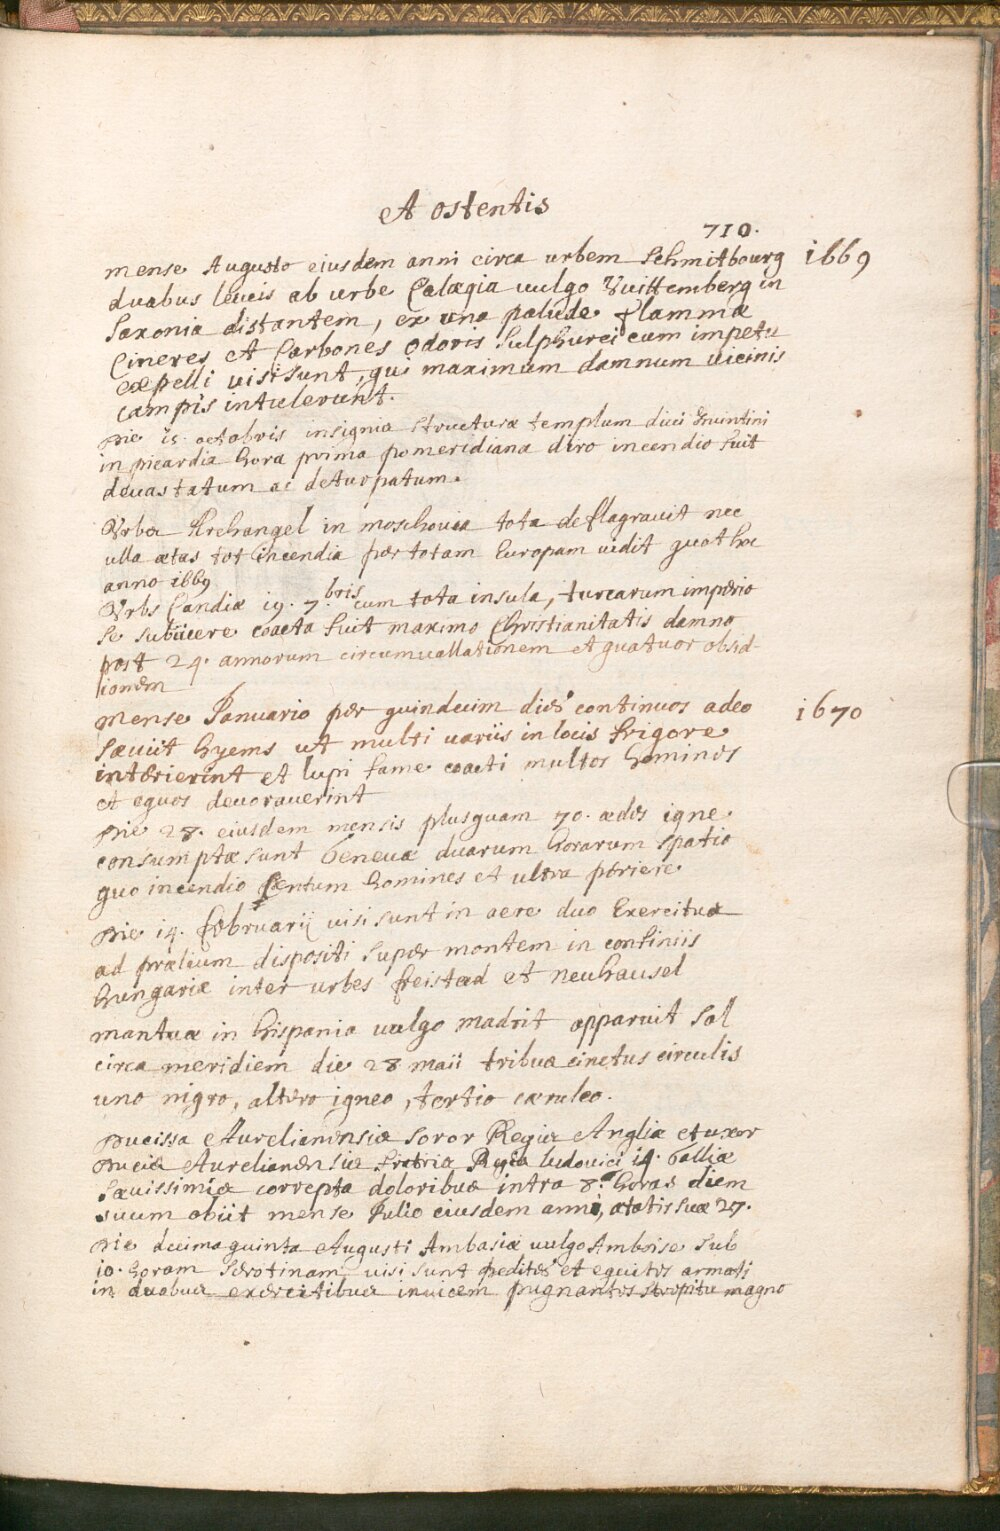 et ostentis
710.
mense Augusto eiusdem anni circa urbem Schmitbourg 1669
duabus leucis ab urbe Calægia vulgo Vuittemberg in
Saxonia distantem, ex una palude flammæ
Cineres et Carbones odoris Sulphurei cum impetu
expelli visi sunt, qui maximum damnum vicinis
campis intulerunt.
Die 15. octobris insignis structuræ templum divi Quintini
in picardia hora prima pomeridiana diro incendio fuit
devastatum ac deturpatum.
Vrbs Archangel in moschovia tota deflagravit nec
ulla ætas tot incendia per totam Europam vidit quot hoc
anno 1669
Vrbs Candiæ 19. 7.bris cum tota insula, turcarum imperio
se subiicere coacta fuit maximo Christianitatis damno
post 24. annorum circumvallationem et quatuor obsid-
ionem
mense Ianuario per quindecim dies continuos adeo 1670
sæviit hyems ut multi variis in locis frigore
interierint et lupi fame coacti multos homines
et equos devoraverint
Die 28. eiusdem mensis plusquam 70. ædes igne
consumptæ sunt Genevæ duarum horarum spatio
quo incendio Centum homines et ultra periere
Die 14. februarij visi sunt in aere duo Exercitus
ad prælium dispositi super montem in confiniis
hungariæ inter urbes freistad et neuhausel
mantuæ in hispania vulgo madrit apparuit sol
circa meridiem die 28 maii tribus cinctus circulis
uno nigro, altero igneo, tertio cæruleo.
Ducissa Aurelianensis soror Regis Angliæ et uxor
Ducis Aurelianensis fratris Regis ludovici 14. Galliæ
sævissimis correpta doloribus intra 8. horas diem
suum obiit mense Iulio eiusdem anni, ætatis suæ 27.
Die decima quinta Augusti Ambasiæ vulgo Amboise sub
10. horam serotinam visi sunt pedites et equites armati
in duabus exercitibus invicem pugnantes strepitu magno